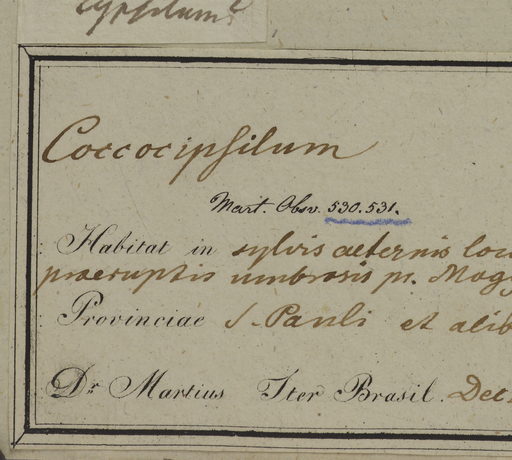 Coccocipsilum
Mart. Obsv. 530.531.
Habitat in sylvis aeternis locis
praeruptis umbrosis pr. Mogy
Provinciae S. Pauli et alib
Dr. Martius Iter Brasil. Dec